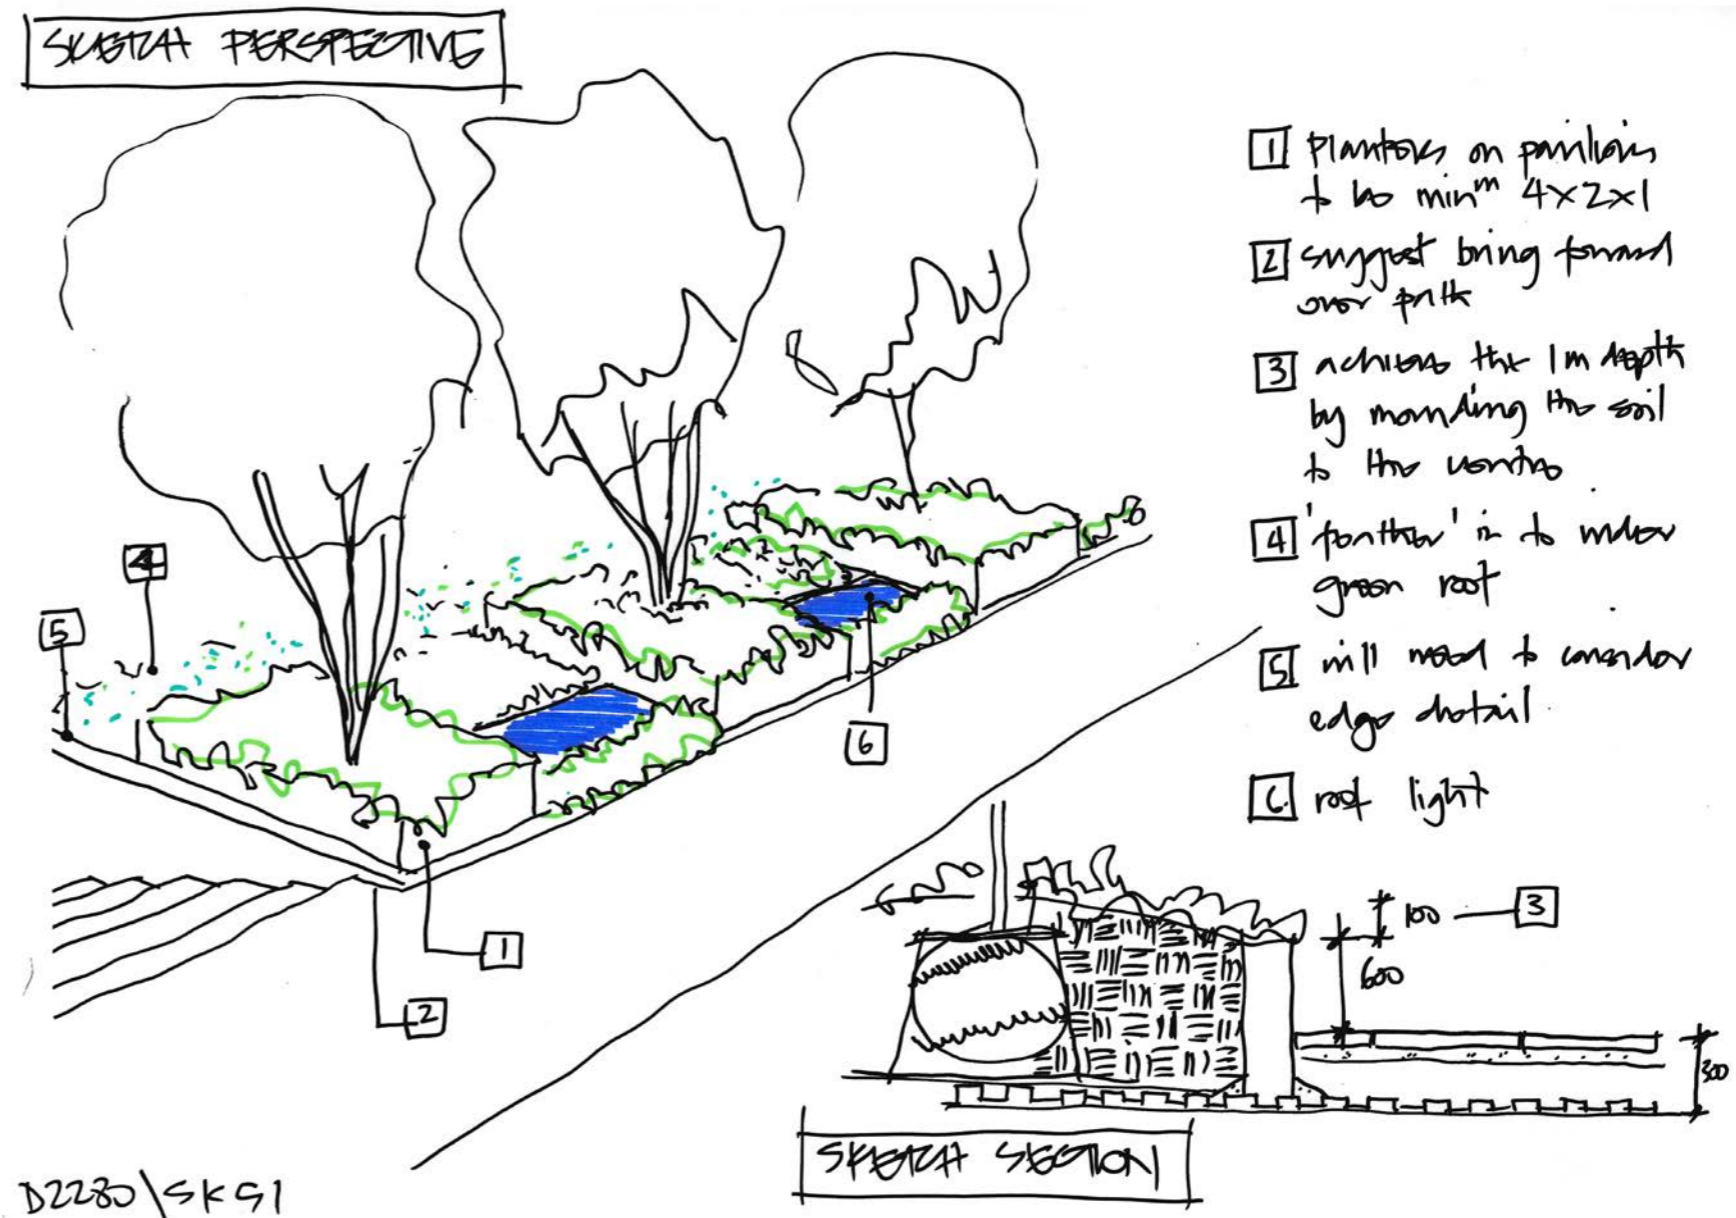 SKETCH PERSPECTIVE
1 planters on pavilions
to be minm 4x2x1
2 suggest bring forward
over path
3 achieve the 1m depth
by mounding the soil
to the centre
4 'further' in to wider
green roof
5 will need to consider
edge detail
6 roof light
4
5
6
1
2
100
3
600
300
SKETCH SECTION
D2280\SK51